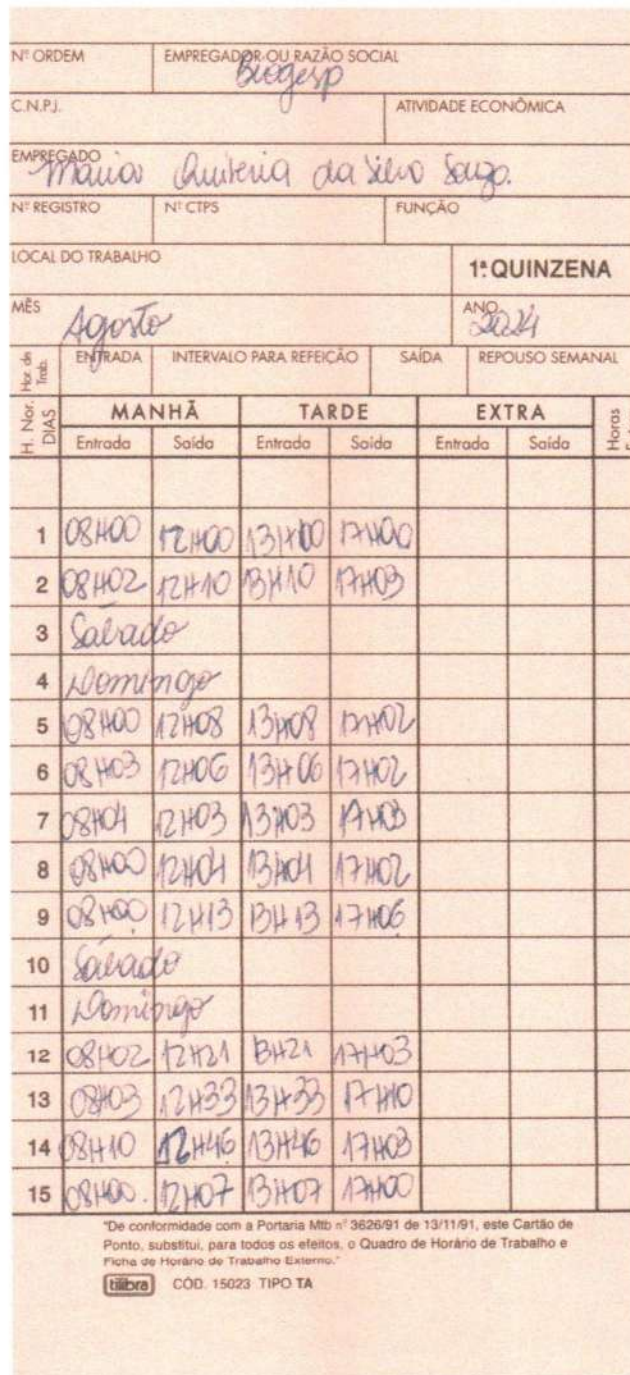 Nº ORDEM EMPREGADOR OU RAZÃO SOCIAL
Biogesp
C.N.P.J. ATIVIDADE ECONÔMICA
EMPREGADO
Maria Quiteria da Silva Souza.
Nº REGISTRO Nº CTPS FUNÇÃO
LOCAL DO TRABALHO 1ª QUINZENA
MÊS Agosto ANO 2024
Hor. de Trab. ENTRADA INTERVALO PARA REFEIÇÃO SAÍDA REPOUSO SEMANAL
H. Nor. DIAS MANHÃ TARDE EXTRA Horas
Entrada Saída Entrada Saída Entrada Saída
1 08H00 12H00 13H00 17H00
2 08H02 12H10 13H10 17H03
3 Sábado
4 Domingo
5 08H00 12H08 13H08 17H02
6 08H03 12H06 13H06 17H02
7 08H04 12H03 13H03 17H03
8 08H00 12H04 13H04 17H02
9 08H00 12H13 13H13 17H06
10 Sábado
11 Domingo
12 08H02 12H21 13H21 17H03
13 08H03 12H33 13H33 17H10
14 08H10 12H46 13H46 17H03
15 08H00. 12H07 13H07 17H00
"De conformidade com a Portaria Mtb nº 3626/91 de 13/11/91, este Cartão de
Ponto, substitui, para todos os efeitos, o Quadro de Horário de Trabalho e
Ficha de Horário de Trabalho Externo."
tilibra CÓD. 15023 TIPO TA